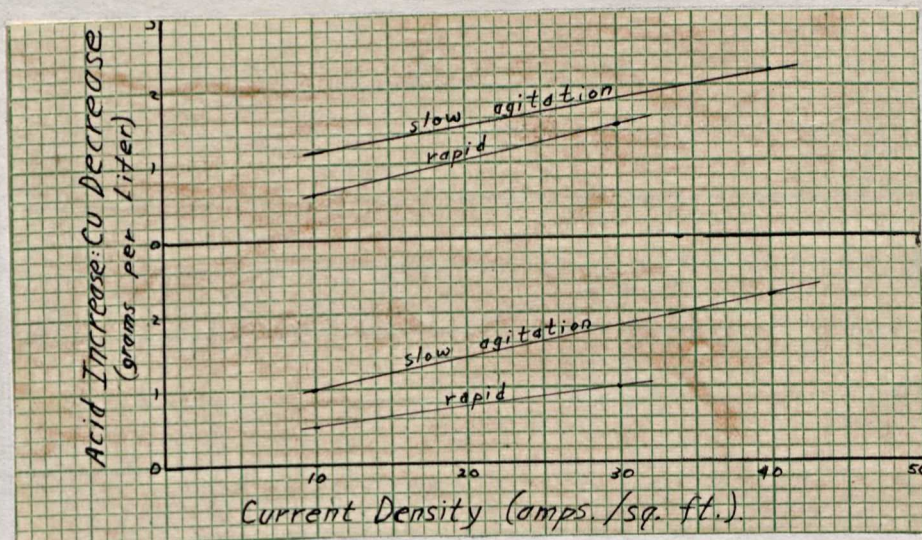 Acid Increase:Cu Decrease
(grams per Liter)
3
2
1
0
2
1
0
slow agitation
rapid
slow agitation
rapid
10 20 30 40 50
Current Density (amps./sq. ft.)